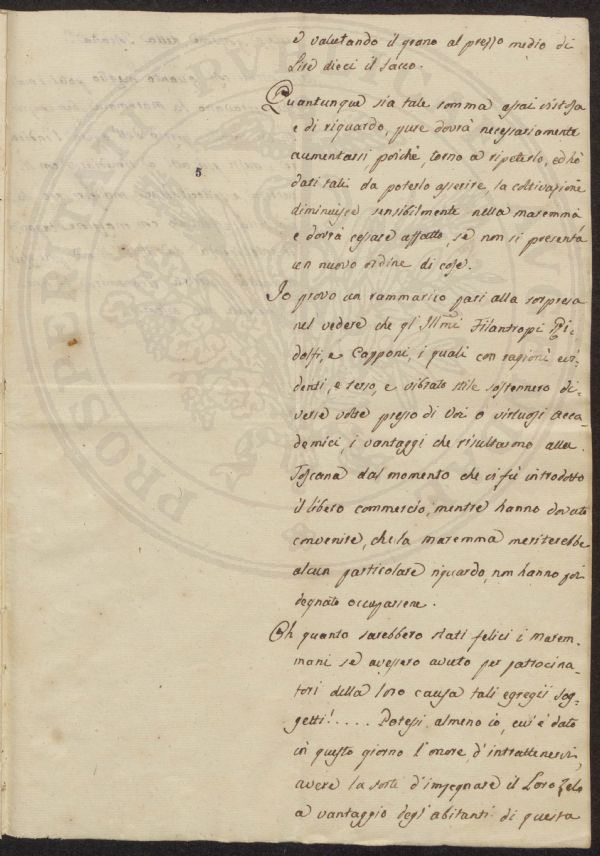 e valutando il grano al prezzo medio di
Lire dieci il sacco.
Quantunque sia tale somma assai vistosa
e di riguardo, pure dovrà necessariamente
aumentarsi poichè, torno a ripeterlo, ed hò
dati tali da poterlo asserire, la coltivazione
diminuisce sensibilmente nella maremma
e dovrà cessare affatto, se non si presenta
un nuovo ordine di cose.
5
Io provo un rammarico pari alla sorpresa
nel vedere che gl' Illmi Filantropi Ri-
dolfi, e Capponi, i quali con ragioni evi-
denti, e terso, e vibrato stile sostennero di-
verse volte presso di Voi o virtuosi Acca-
demici, i vantaggi che risultarono alla
Toscana dal momento che vi fù introdotto
il libero commercio, mentre hanno dovuto
convenire, che la maremma meriterebbe
alcun particolare riguardo, non hanno poi
degnato occuparsene.
Oh quanto sarebbero stati felici i marem-
mani se avessero avuto per patrocina-
tori della loro causa tali egregii sog-
getti!.... Potessi almeno io, cui è dato
in questo giorno l'onore d'intrattenervi,
avere la sorte d'impegnare il Loro Zelo
a vantaggio degl'abitanti di questa
PROSPERITATI PUBLICAE